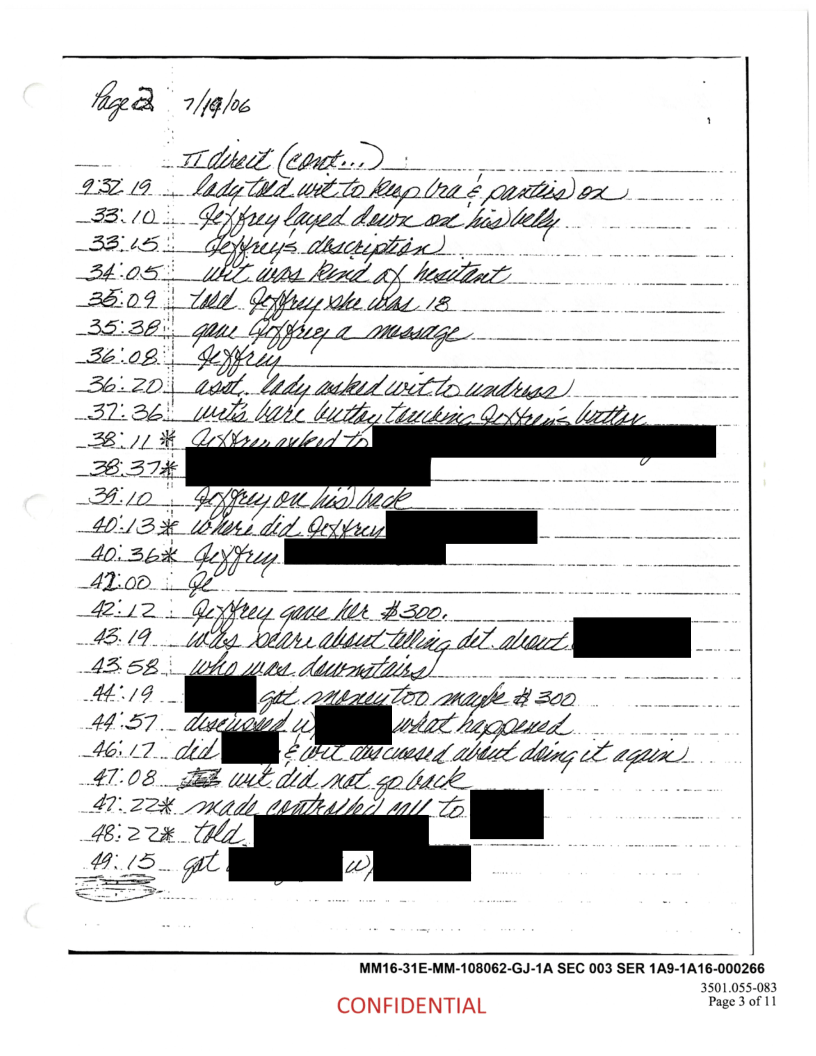 Page 2 7/19/06
π direct (cont...)
9:32:19 lady told wit to keep bra & panties on
33:10 Jeffrey layed down on his belly
33:15 Jeffrey's description
34:05 wit was kind of hesitant
35:09 told Jeffrey she was 18
35:38 gave Jeffrey a massage
36:08 Jeffrey
36:20 asst. lady asked wit to undress
37:36 wit's bare buttox touching Jeffrey's buttox
38:11* Jeffrey asked to
38:37*
39:10 Jeffrey on his back
40:13* where did Jeffrey
40:36* Jeffrey
42:00 Je
42:12 Jeffrey gave her $300.
43:19 was scare about telling det. about
43:58 who was downstairs
44:19 got money too maybe $300
44:57 discussed w/ what happened
46:17 did & wit discussed about doing it again
47:08 wit did not go back
47:22* made controlled call to
48:27* told
49:15 got w/
MM16-31E-MM-108062-GJ-1A SEC 003 SER 1A9-1A16-000266
3501.055-083
CONFIDENTIAL Page 3 of 11